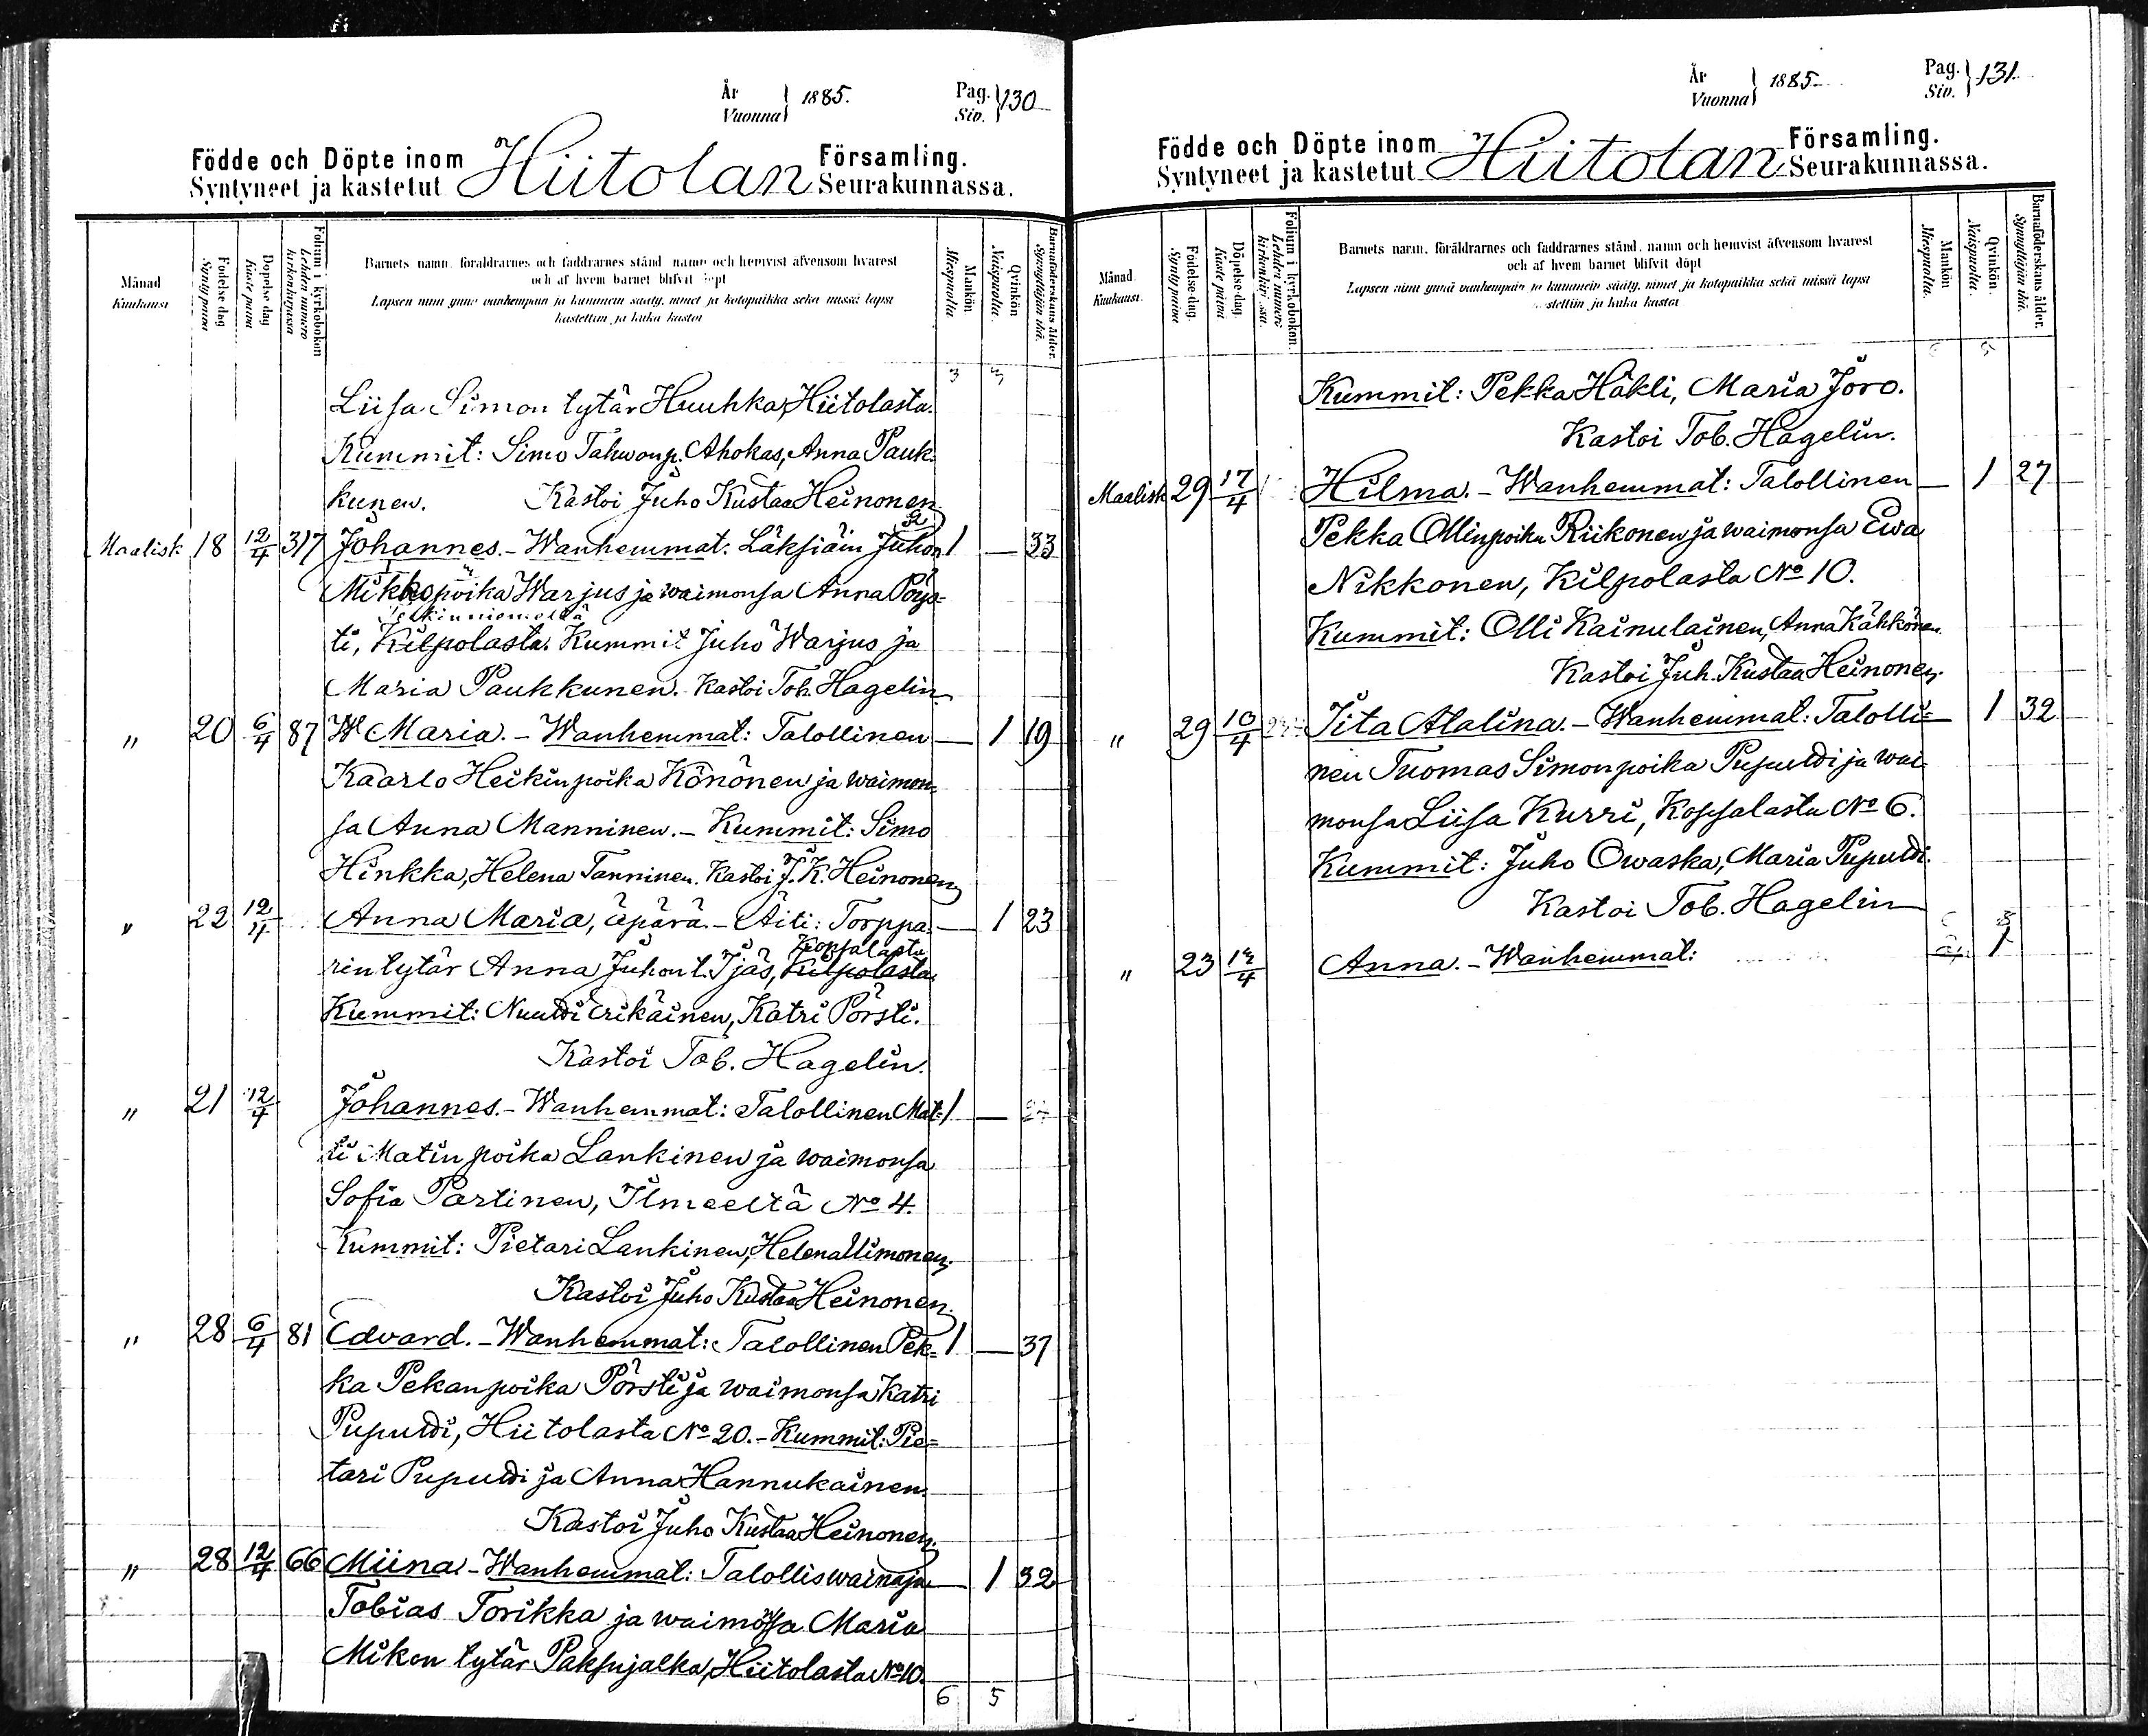 År Vuonna } 1885. Pag. Siv. } 130
Födde och Döpte inom Syntyneet ja kastetut Hiitolan Församling. Seurakunnassa.
Månad Kuukausi
Födelse dag Synty päivä
Döpelse dag Kaste päivä
Folium i kyrkoboken Lehden numero kirkonkirjassa
Barnets namn, föräldrarnes och faddrarnes stånd, namn och hemvist äfvensom hvarest
och af hvem barnet blifvit döpt
Lapsen nimi ynnä vanhempain ja kummein sääty, nimet ja kotopaikka sekä missä lapsi
kastettiin ja kuka kastoi
Mankön Miespuolia.
Qvinkön Naispuolia.
Barnaföderskans ålder. Synnyttäjän ikä.
3 3
Liisa Simon tytär Huuhka, Hiitolasta.
Kummit: Simo Tahwonp. Ahokas, Anna Pauk-
kunen. Kastoi Juho Kustaa Heinonen.
Maalisk 18 12/4 317 Johannes. - Wanhemmat: Läksiäin Juhon 1 — 33
Mikkopoika Warjus ja waimonsa Anna Pöys-
ti, Kilpolasta. Kummit Juho Warjus ja
Maria Paukkunen. Kastoi Tob. Hagelin
" 20 6/4 87 W Maria. - Wanhemmat: Talollinen — 1 19
Kaarlo Heikinpoika Könönen ja waimon-
sa Anna Manninen. - Kummit: Simo
Hinkka, Helena Tanninen. Kastoi J. K. Heinonen
" 22 12/4 Anna Maria, äpärä. - Äiti: Torppa- — 1 23
Kopsalasta
rintytär Anna Juhont. Ijäs, Kilpolasta
Kummit: Nuutti Erikäinen, Katri Pörsti.
Kastoi Tob. Hagelin.
" 21 12/4 Johannes. - Wanhemmat: Talollinen Mat- 1 —
ti Matinpoika Lankinen ja waimonsa
Sofia Partinen, Ilmeeltä No 4.
Kummit: Pietari Lankinen, Helena Uimonen.
Kastoi Juho Kustaa Heinonen.
" 28 6/4 81 Edvard. - Wanhemmat: Talollinen Pek- 1 — 37
ka Pekanpoika Pörsti ja waimonsa Katri
Puputti, Hiitolasta No 20. - Kummit: Pie-
tari Puputti ja Anna Hannukainen.
Kastoi Juho Kustaa Heinonen.
" 28 12/4 66 Miina - Wanhemmat: Talolliswainaja — 1 32
Tobias Torikka ja waimonsa Maria
Mikon tytär Paksujalka, Hiitolasta No 10.
6 5
År Vuonna } 1885. Pag. Siv. } 131.
Födde och Döpte inom Syntyneet ja kastetut Hiitolan Församling. Seurakunnassa.
Månad Kuukausi.
Födelse-dag. Synty päivä
Döpelse-dag. Kaste päivä
Folium i kyrkoboken. Lehden numero kirkonkirjassa.
Barnets namn, föräldrarnes och faddrarnes stånd, namn och hemvist äfvensom hvarest
och af hvem barnet blifvit döpt
Lapsen nimi ynnä vanhempain ja kummein sääty, nimet ja kotopaikka sekä missä lapsi
kastettiin ja kuka kastoi
Mankön Miespuolia.
Qvinkön Naispuolia.
Barnaföderskans ålder. Synnyttäjän ikä.
6 5
Kummit: Pekka Häkli, Maria Joro.
Kastoi Tob. Hagelin.
Maalisk 29 17/4 Hilma. - Wanhemmat: Talollinen — 1 27
Pekka Ollinpoika Riikonen ja waimonsa Ewa
Nikkonen, Kilpolasta No 10.
Kummit: Olli Kainulainen, Anna Kähkönen.
Kastoi Juh. Kustaa Heinonen.
" 29 10/4 Iita Alalina. - Wanhemmat: Talolli- — 1 32
nen Tuomas Simonpoika Puputti ja wai-
monsa Liisa Kurri, Kopsalasta No 6.
Kummit: Juho Owaska, Maria Puputti.
Kastoi Tob. Hagelin
" 23 /4 Anna. - Wanhemmat: 1